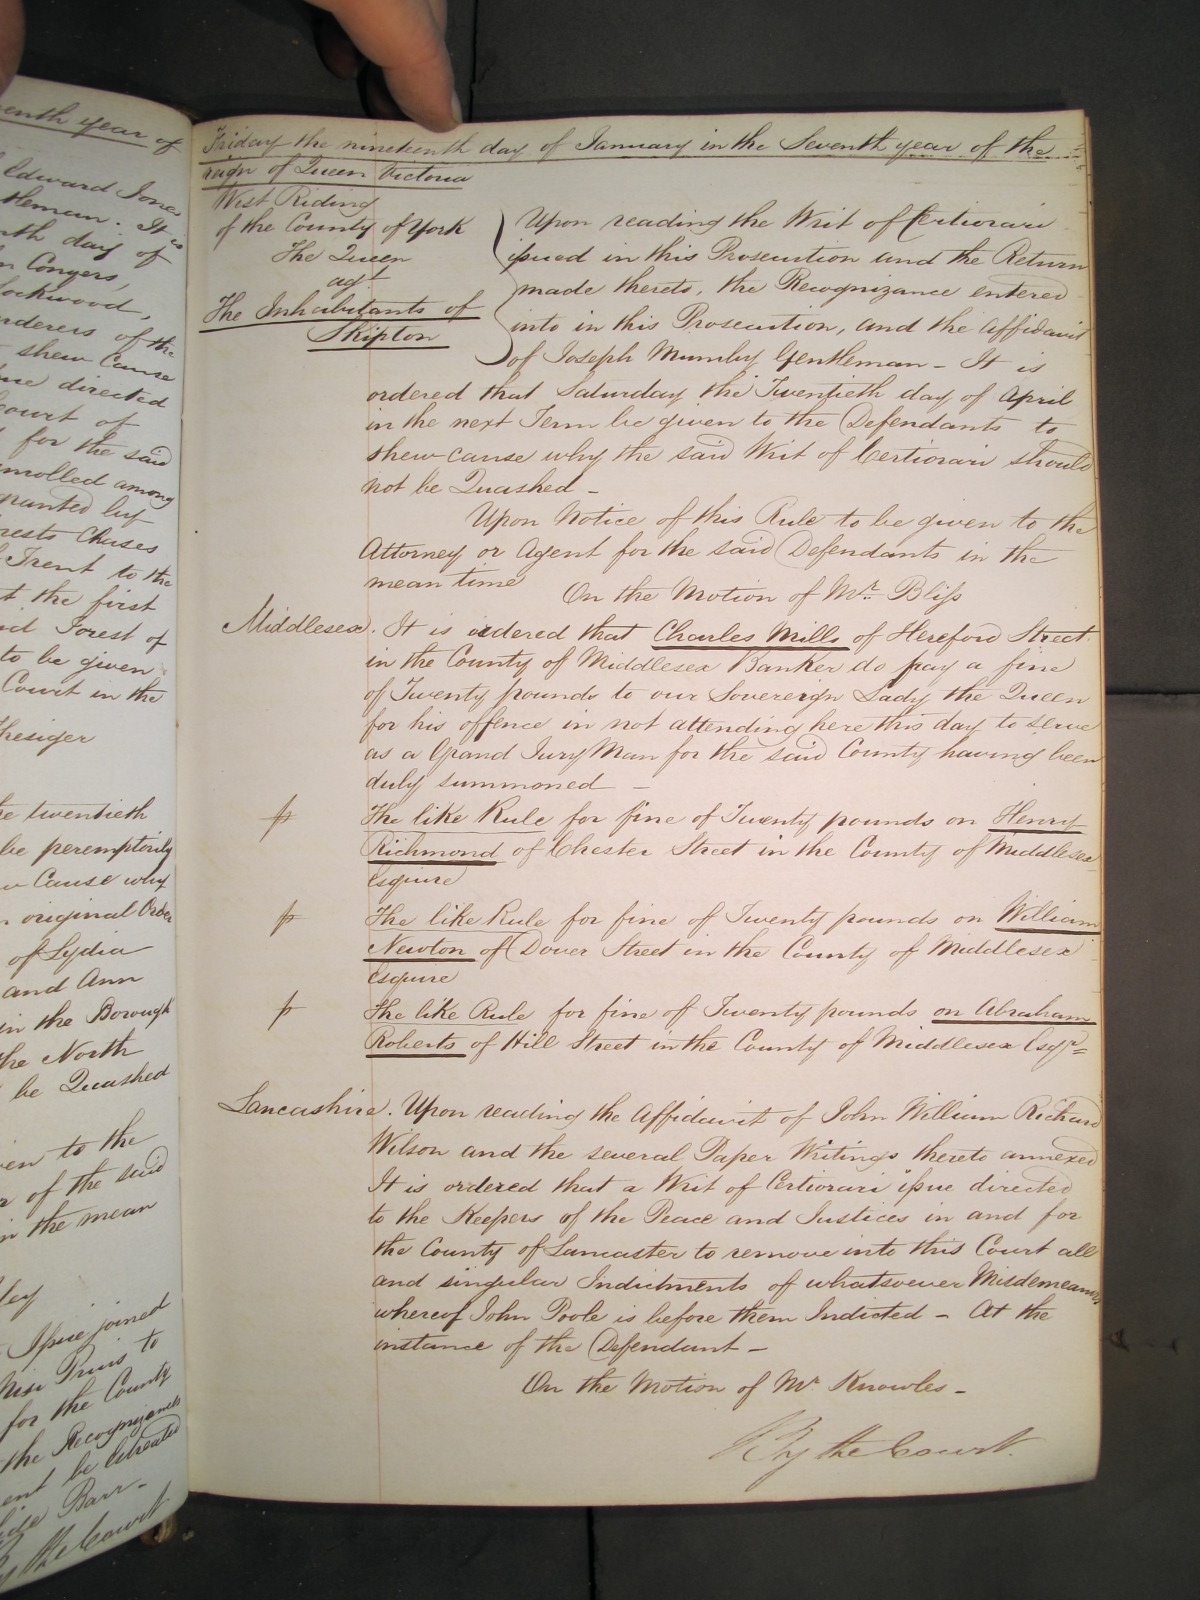 enth year of
Edward Jones
tleman. It is
nth day of
n Congers,
Lockwood,
nderers of the
shew Cause
ue directed
Court of
for the said
nrolled among
granted by
rests Chases
Trent to the
t the first
id Forest of
to be given
Court in the
hesiger
he twentieth
be peremptorily
w Cause why
n original Order
of Lydia
and Ann
in the Borough
he North
be Quashed
en to the
r of the said
in the mean
ley
Issue joined
Nisi Prius to
for the County
the Recognizances
ent be Estreated
Barr -
By the Court
Friday the nineteenth day of January in the Seventh year of the
reign of Queen Victoria
West Riding
of the County of York
The Queen
agt
The Inhabitants of
Skipton
Upon reading the Writ of Certiorari
issued in this Prosecution and the Return
made thereto, the Recognizance entered
into in this Prosecution, and the Affidavit
of Joseph Mumby Gentleman - It is
ordered that Saturday the Twentieth day of April
in the next Term be given to the Defendants to
shew cause why the said Writ of Certiorari should
not be Quashed -
Upon Notice of this Rule to be given to the
Attorney or Agent for the said Defendants in the
mean time
On the Motion of Mr. Bliss
Middlesex. It is ordered that Charles Mills of Hereford Street
in the County of Middlesex Banker do pay a fine
of Twenty pounds to our Sovereign Lady the Queen
for his offence in not attending here this day to serve
as a Grand Jury Man for the said County having been
duly summoned -
The like Rule for fine of Twenty pounds on Henry
Richmond of Chester Street in the County of Middlesex
Esquire
The like Rule for fine of Twenty pounds on William
Newton of Dover Street in the County of Middlesex
Esquire
The like Rule for fine of Twenty pounds on Abraham
Roberts of Hill Street in the County of Middlesex Esqr.
Lancashire. Upon reading the Affidavit of John William Richard
Wilson and the several Paper Writings thereto annexed
It is ordered that a Writ of Certiorari issue directed
to the Keepers of the Peace and Justices in and for
the County of Lancaster to remove into this Court all
and singular Indictments of whatsoever Misdemeanors
whereof John Poole is before them Indicted - At the
instance of the Defendant -
On the Motion of Mr. Knowles -
By the Court.